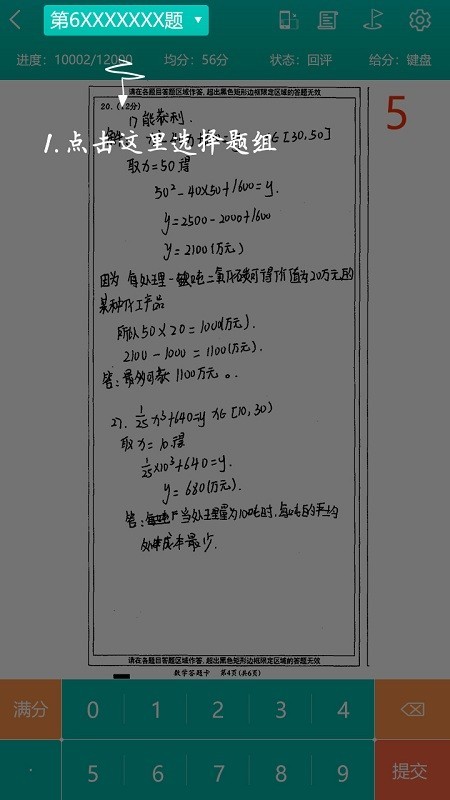 第6XXXXXXX题
进度：10002/12000 均分：56分 状态：回评 给分：键盘
请在各题目答题区域作答，超出黑色矩形边框限定区域的答题无效
20.（12分）
5
1.点击这里选择题组
能获利.
∈[30,50]
取x=50得
50²-40×50+1600=y.
y=2500-2000+1600
y=2100(万元)
因为 每处理一吨二氧化碳可得价值为20万元的
某种化工产品
所以50×20=1000(万元).
2100-1000=1100(万元).
答：最多可获1100万元。
1/25x³+640=y x∈[10,30)
取x=10得
1/25×10³+640=y.
y=680(万元).
答：当处理量为10吨时,每吨的平均
处理成本最少.
请在各题目答题区域作答，超出黑色矩形边框限定区域的答题无效
数学答题卡 第4页(共6页)
满分 0 1 2 3 4
· 5 6 7 8 9 提交